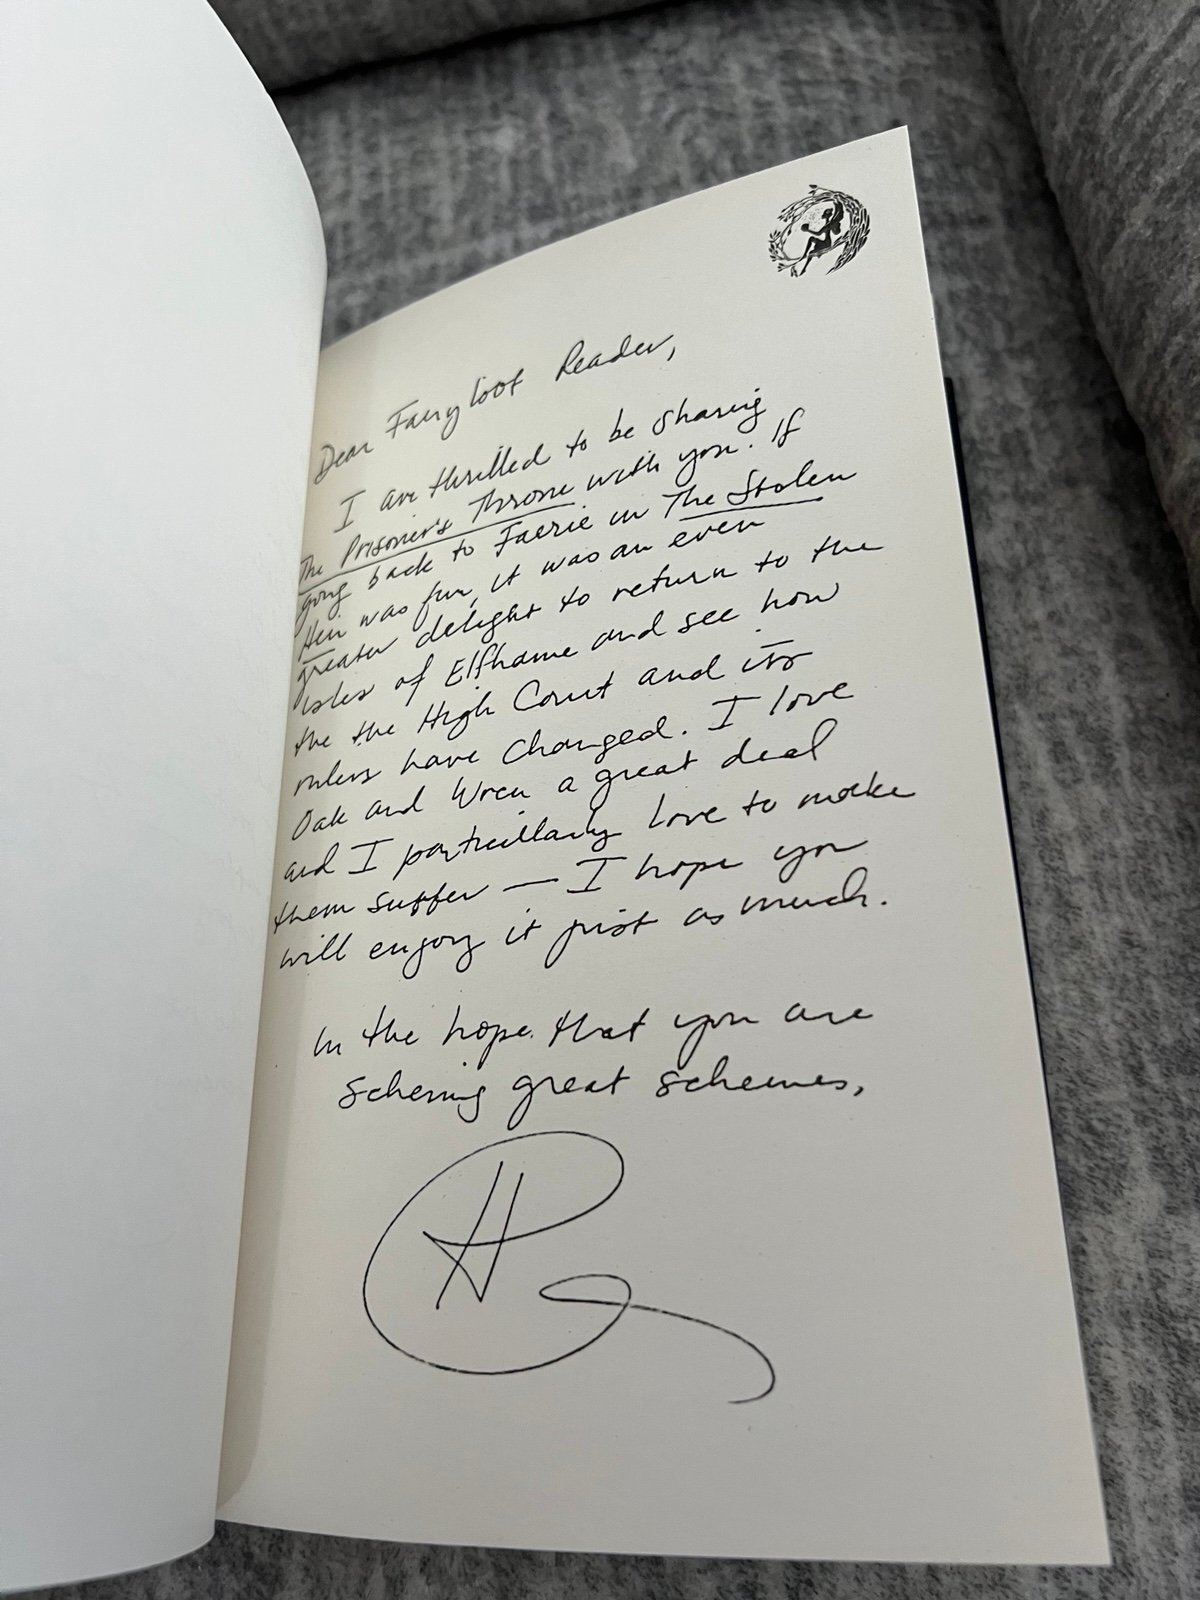 Dear Fairyloot Reader,
I am thrilled to be sharing
The Prisoner's Throne with you. If
going back to Faerie in The Stolen
Heir was fun, it was an even
greater delight to return to the
isles of Elfhame and see how
the the High Court and its
rulers have changed. I love
Oak and Wren a great deal
and I particularly love to make
them suffer — I hope you
will enjoy it just as much.
In the hope that you are
scheming great schemes,
H